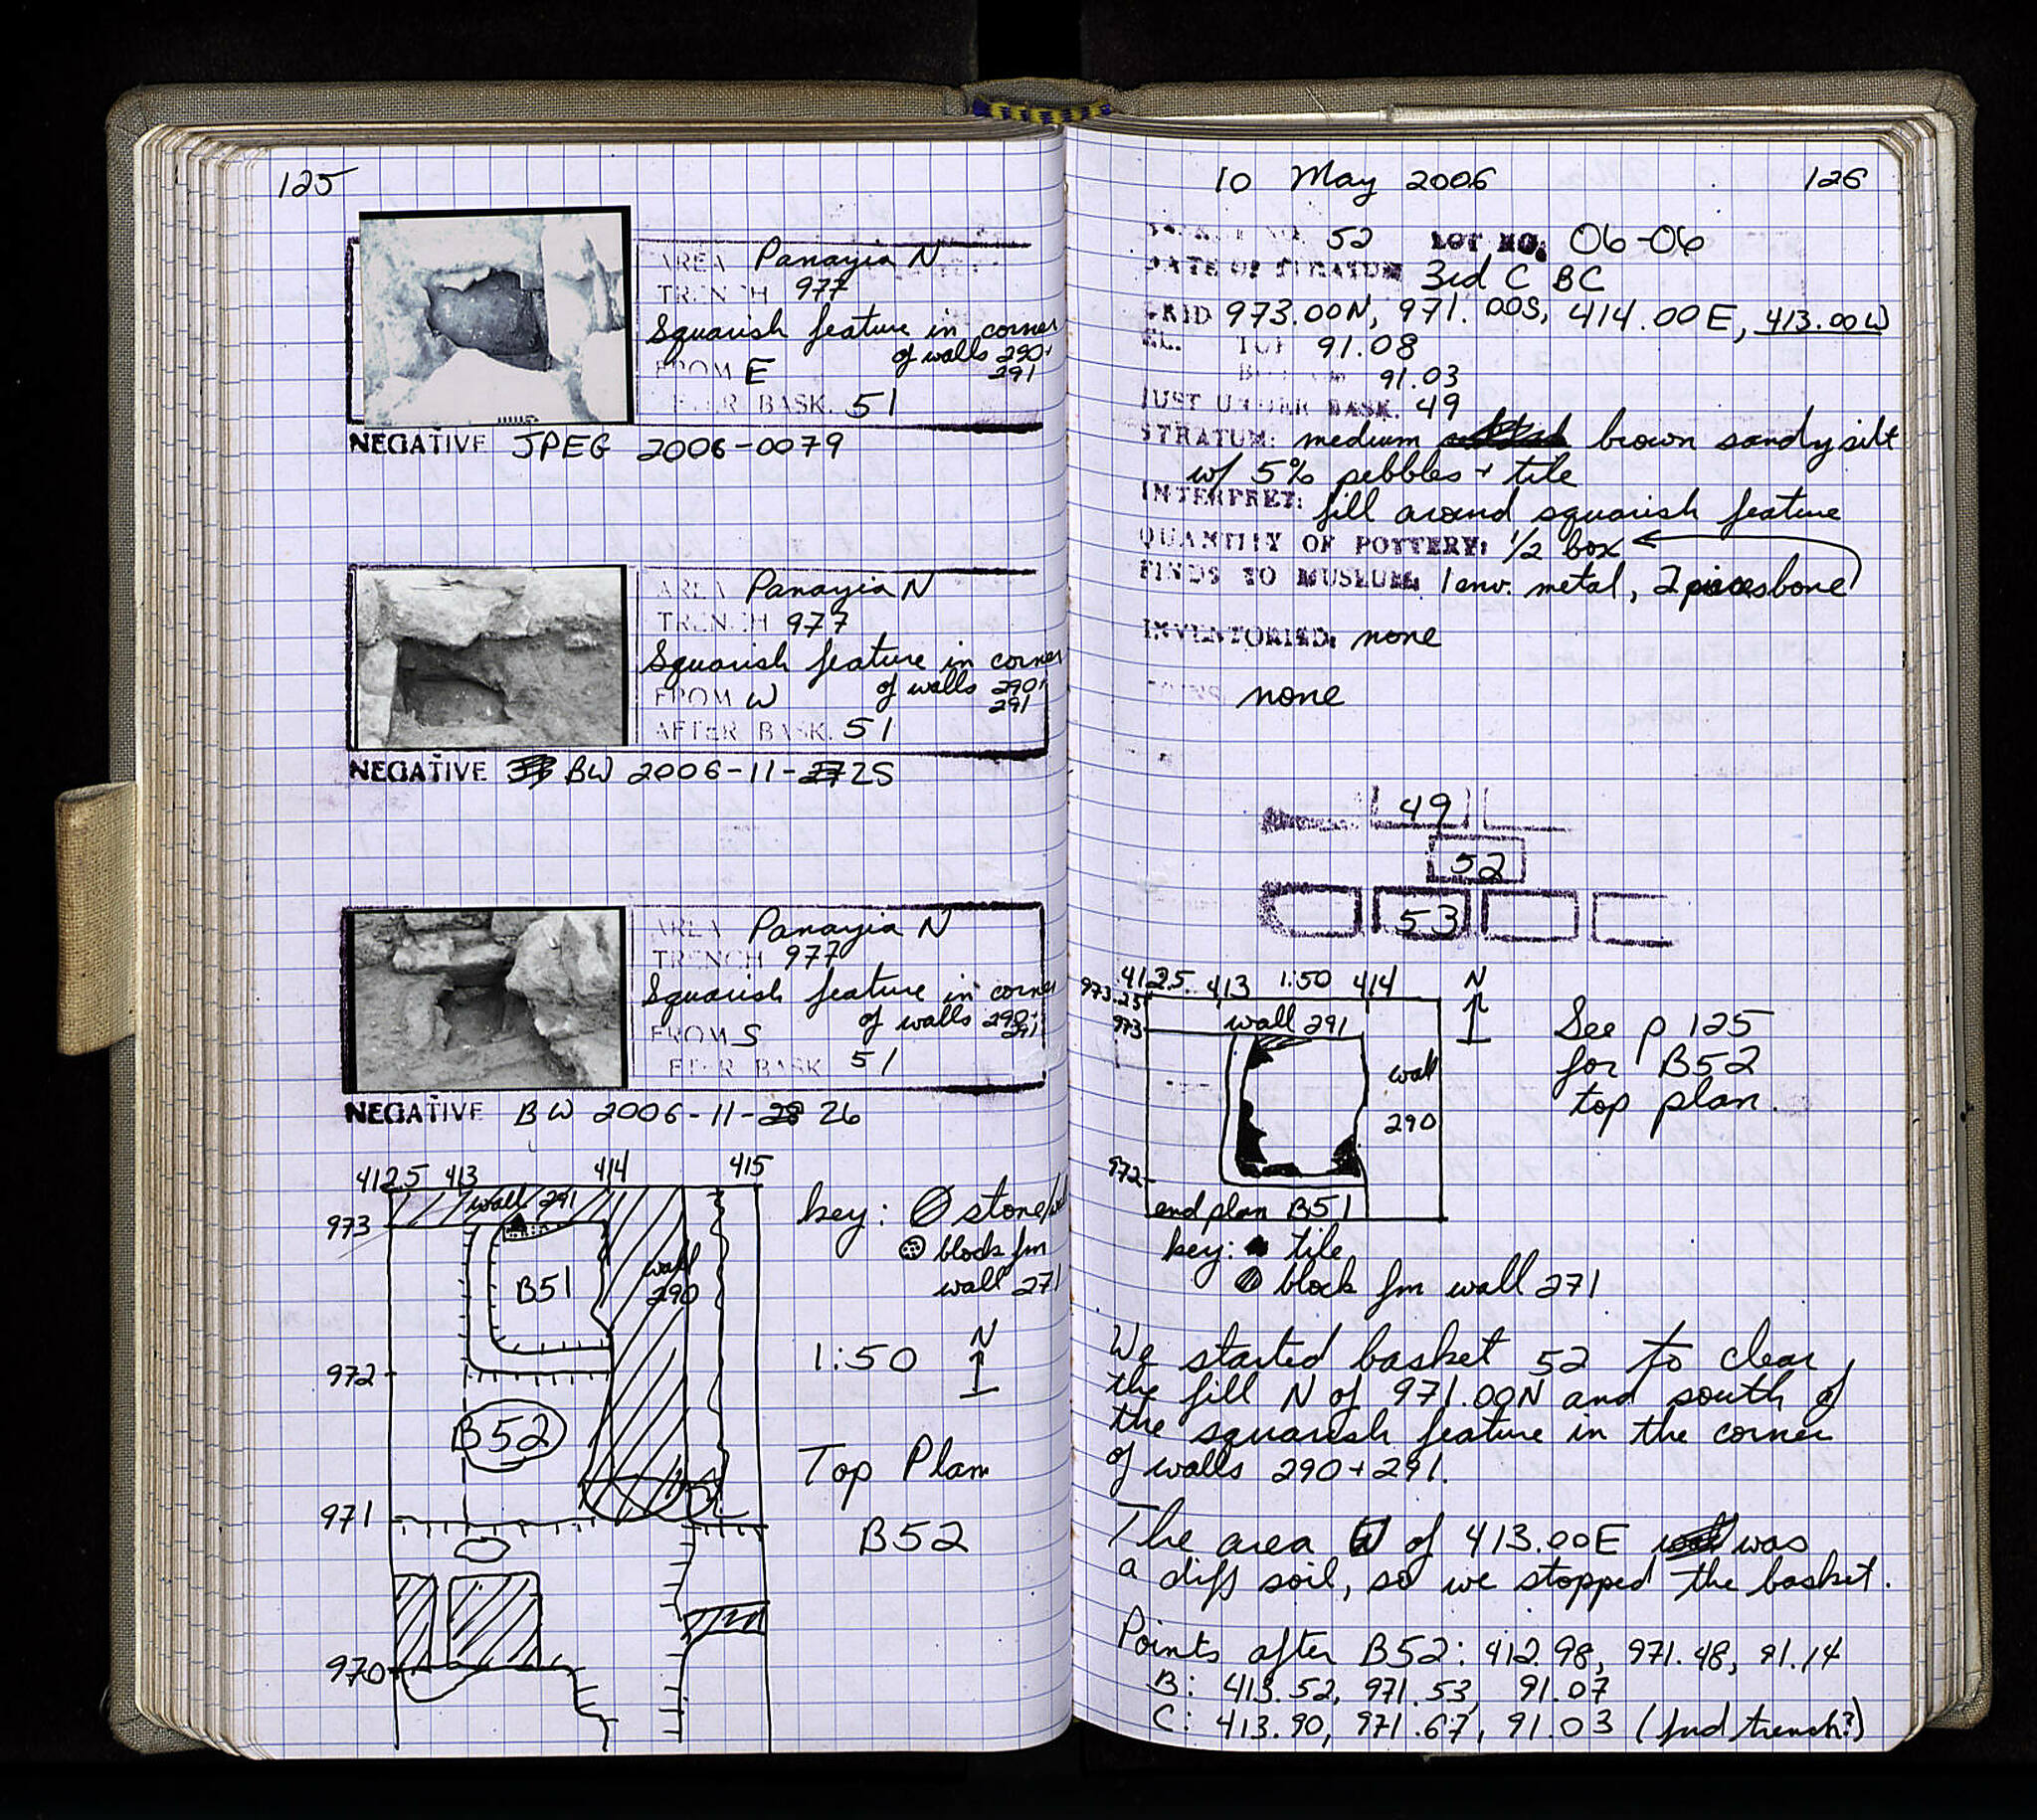 125
AREA Panayia N
TRENCH 977
Squarish feature in corner
of walls 290+
291
FROM E
AFTER BASK. 51
NEGATIVE JPEG 2006-0079
AREA Panayia N
TRENCH 977
Squarish feature in corner
of walls 290+
291
FROM W
AFTER BASK. 51
NEGATIVE BW 2006-11-25
AREA Panayia N
TRENCH 977
Squarish feature in corner
of walls 290+
291
FROM S
AFTER BASK 51
NEGATIVE BW 2006-11-26
412.5 413 414 415
973
wall 291
B51
wall
290
972
B52
971
970
key: stone/
block fm
wall 271
1:50 N
Top Plan
B52
10 May 2006 126
BASKET NO. 52 LOT NO. 06-06
DATE OF STRATUM 3rd C BC
GRID 973.00N, 971.00S, 414.00E, 413.00W
EL. TOP 91.08
BOTTOM 91.03
JUST UNDER BASK. 49
STRATUM: medium brown sandy silt
w/ 5% pebbles + tile
INTERPRET: fill around squarish feature
QUANTITY OF POTTERY: 1/2 box
FINDS TO MUSEUM: 1 env. metal, 2 pieces bone
INVENTORIED: none
none
49
52
53
412.5 413 1:50 414 N
973.25
973
wall 291
wall
290
972
end plan B51
See p 125
for B52
top plan.
key: tile
block fm wall 271
We started basket 52 to clear
the fill N of 971.00N and south of
the squarish feature in the corner
of walls 290+291.
The area W of 413.00E was
a diff soil, so we stopped the basket.
Points after B52: 412.98, 971.48, 91.14
B: 413.52, 971.53, 91.07
C: 413.90, 971.67, 91.03 (fnd trench?)